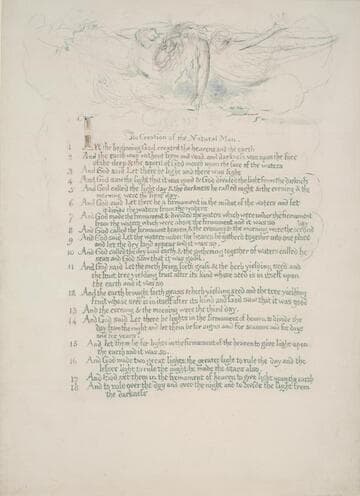 The Creation of the Natural Man
1 At the beginning God created the heavens and the earth
2 And the earth was without form and void and darkness was upon the face
of the deep & the spirit of God moved upon the face of the waters
3 And God said Let there be light and there was light
4 And God saw the light that it was good & God divided the light from the darkness
5 And God called the light day & the darkness he called night & the evening & the
morning were the first day.
6 And God said Let there be a firmament in the midst of the waters and let
it divide the waters from the waters
7 And God made the firmament & divided the waters which were under the firmament
from the waters which were above the firmament and it was so
8 And God called the firmament heaven, & the evening & the morning were the second
day
9 And God said Let the waters under the heaven be gathered into one place
and let the dry land appear and it was so
10 And God called the dry land earth & the gathering together of waters called he
seas and God saw that it was good.
11 And God said Let the earth bring forth grass & the herb yielding seed and
the fruit tree yielding fruit after its kind whose seed is in itself upon
the earth and it was so
12 And the earth brought forth grass & herb yielding seed and the tree yielding
fruit whose seed is in itself after its kind and God saw that it was good
13 And the evening & the morning were the third day.
14 And God said Let there be lights in the firmament of heaven to divide the
day from the night and let them be for signs and for seasons and for days
and years.
15 And let them be for lights in the firmament of the heaven to give light upon
the earth and it was so.
16 And God made two great lights the greater light to rule the day and the
lesser light to rule the night he made the stars also.
17 And God set them in the firmament of heaven to give light upon the earth
18 And to rule over the day and over the night and to divide the light from
the darkness